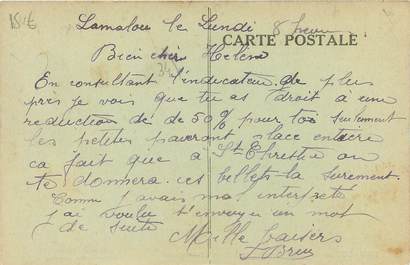 Lamalou le Lundi 8 heure
CARTE POSTALE
Bien chère Hélène
En consultant l'indicateur de plus
près je vois que tu as droit à une
reduction de de 50% pour toi seulement
les petites payeront place entière
ca fait que a St Christie on
te donnera ces billets la surement.
Comme j'avais mal interprété
j'ai voulu t'envoyer un mot
de suite Mille baisers